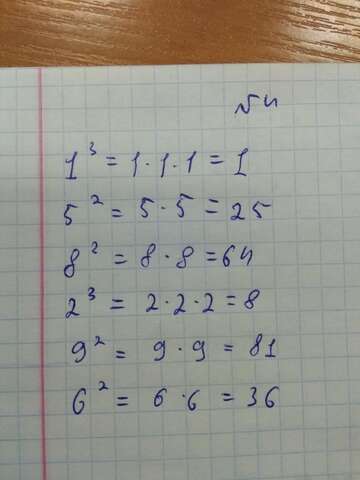 №4
1³ = 1·1·1 = 1
5² = 5·5 = 25
8² = 8·8 = 64
2³ = 2·2·2 = 8
9² = 9·9 = 81
6² = 6·6 = 36